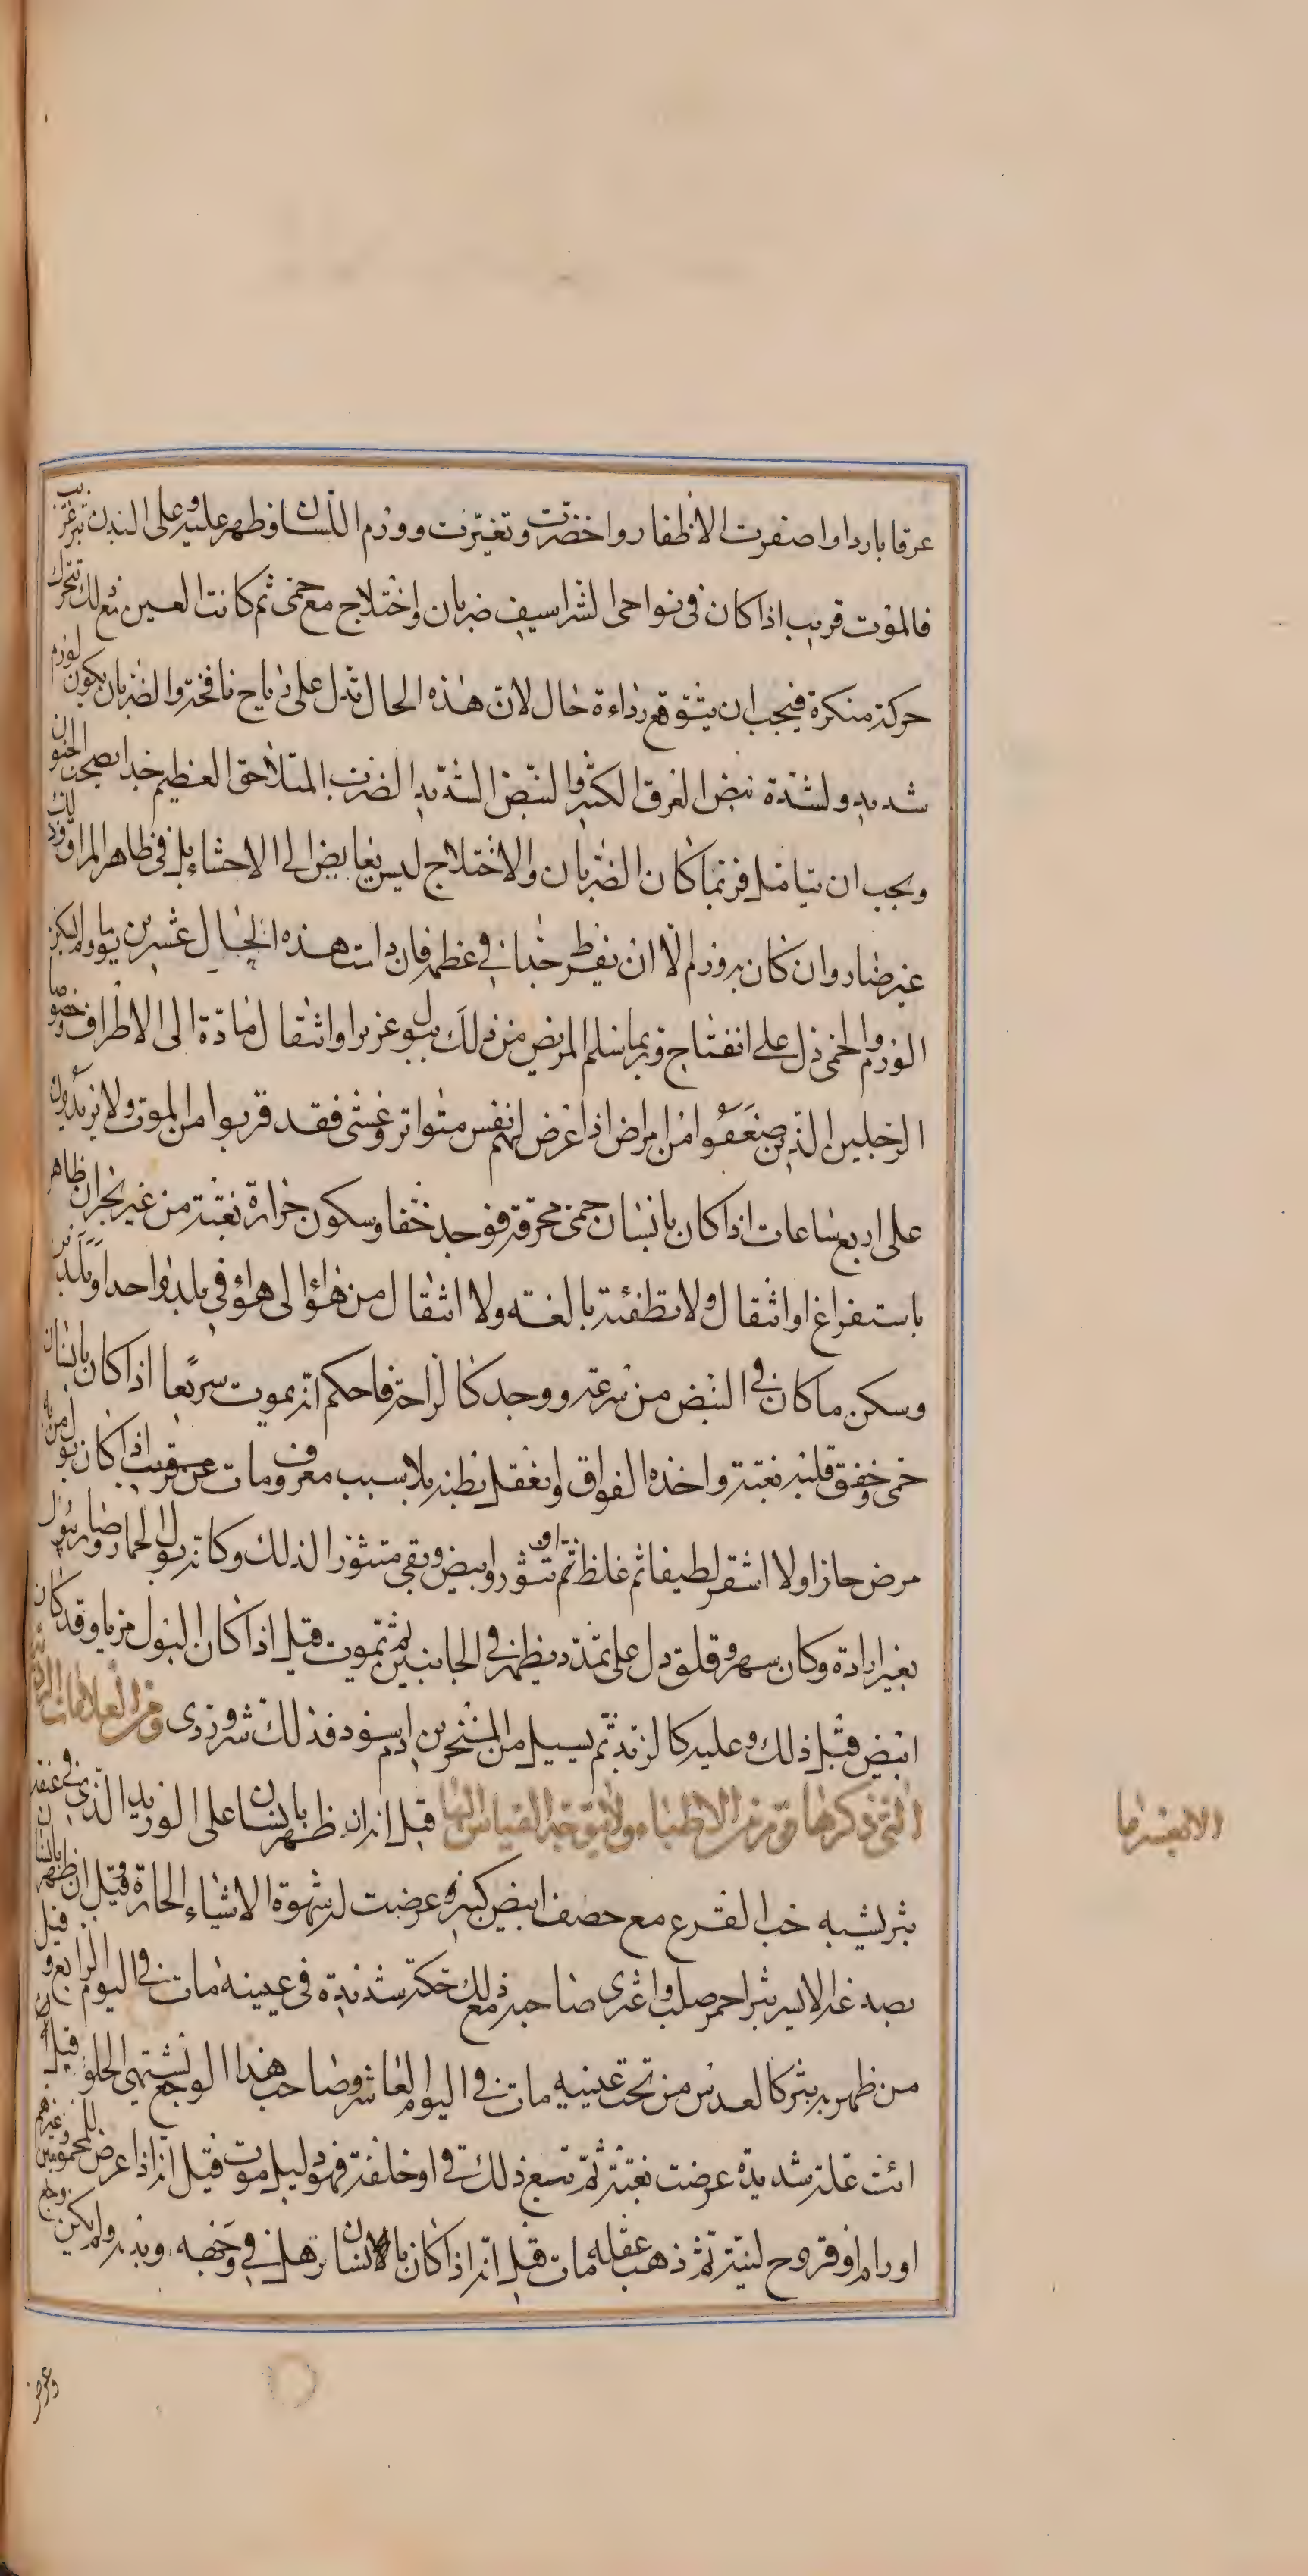 عرقا باردا واصفرت الاظفار واخضرت وتغيرت وورم اللسان وظهر عليه وعلى البدن بثر غريب
فالموت قريب اذا كان فى نواحى الشراسيف ضربان واختلاج مع حمى ثم كانت العين مع ذلك تتحرك
حركة منكرة فيجب ان يتوقع رداءة حال لان هذه الحال تدل على رياح نافخة والضربان يكون لورم
شديد ولشدة نبض العرق الكثير والنبض الشديد الضرب المتلاحق العظيم جدا يصحبه الجنون
ويجب ان يتامل فربما كان الضربان والاختلاج ليس بغايض الى الاحشاء بل فى ظاهر المراق وذلك
غير ضار وان كان بورم الا ان يفرط جدا فى عظمه فان دامت هذه الحال عشرين يوما ولم يسكن
الورم والحمى دل على انفتاح وربما سلم المريض من ذلك ببول غزير او انتقال مادة الى الاطراف وخصوصا
الرجلين الذين ضعفوا من امراض اذا عرض لهم نفس متواتر وغشى فقد قربوا من الموت ولا يزيدون
على اربع ساعات اذا كان بانسان حمى محرقة فوجد خفا وسكون حرارة بغتة من غير بحران ظاهر
باستفراغ او انتقال ولا تطفئة بالغة ولا انتقال من هواء الى هواء فى بلد واحد او بلدين
وسكن ما كان فى النبض من سرعة ووجد كالراحة فاحكم انه يموت سريعا اذا كان بانسان
حمى وخفق قلبه بغتة واخذه الفواق او اعتقل بطنه بلا سبب معروف مات عن قريب اذا كان بول من به
مرض حاد اولا اشقر لطيفا ثم غلظ ثم تثور وابيض وبقى متثورا كذلك وكانه بول الحمار وصار يبول
بغير ارادة وكان سهر وقلق دل على تمدد يظهر فى الجانبين ثم يموت قيل اذا كان البول مريا وقد كان
ابيض قبل ذلك وعليه كالزبد ثم يسيل من المنخرين دم اسود فذلك شر وردى ومن العلامات الردية
التى ذكرها قوم من الاطباء ولا يتوجه القياس اليها قيل انه ان ظهر بانسان على الوريد الذى فى عنقه
بثر يشبه حب القرع مع حصف ابيض كثير وعرضت له شهوة الاشياء الحارة وقيل ان ظهر بالانسان
بصدغه الايسر بثر احمر صلب واعترى صاحبه مع ذلك حكة شديدة فى عينيه مات فى اليوم الرابع وقيل ان
من ظهر به بثر كالعدس من تحت عينيه مات فى اليوم العاشر وصاحب هذا الوجع يشتهى الحلو قيل
اية علة شديدة عرضت بغتة ثم تبع ذلك قى او خلفة فهو دليل موت قيل انه اذا عرض للمحمومين وغيرهم
اورام او قروح لينة ثم ذهب عقله مات قيل انه اذا كان بالانسان ترهل فى وجهه ويديه ولم يكن وجع
وعرض
الا بعسر ما